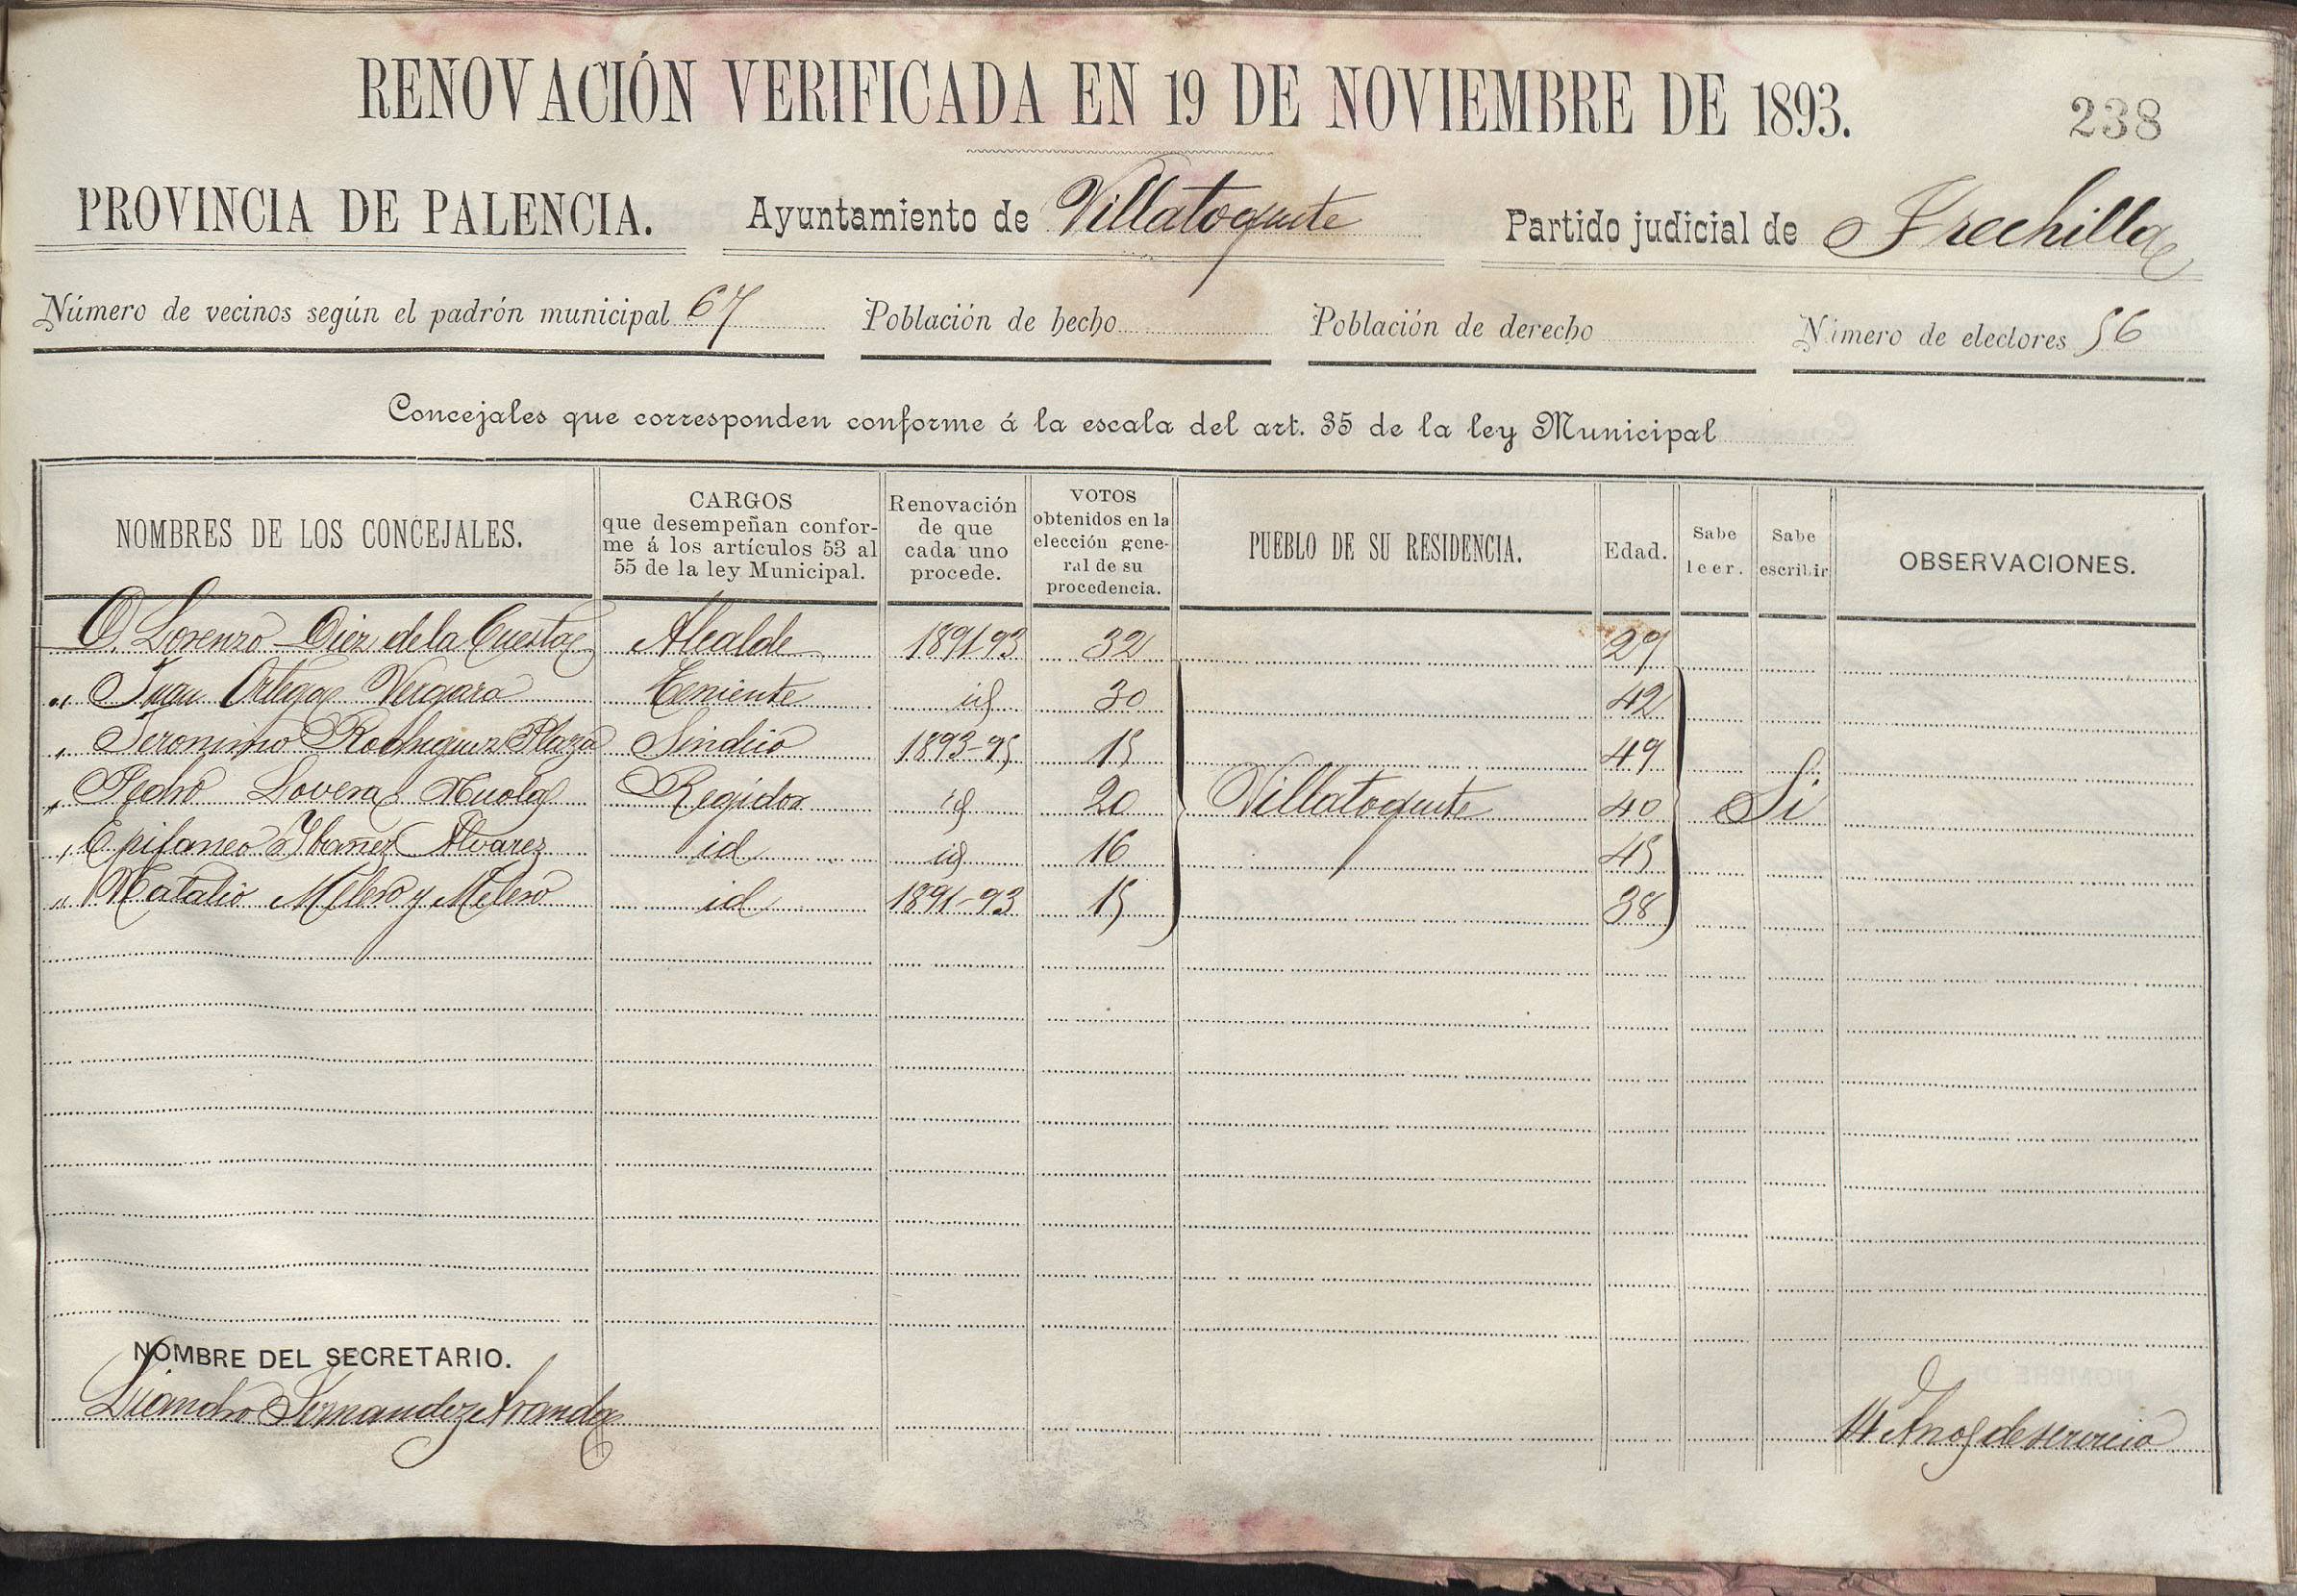 RENOVACIÓN VERIFICADA EN 19 DE NOVIEMBRE DE 1893. 238
PROVINCIA DE PALENCIA. Ayuntamiento de Villatoquite Partido judicial de Frechilla
Número de vecinos según el padrón municipal 67 Población de hecho Población de derecho Número de electores 56
Concejales que corresponden conforme á la escala del art. 35 de la ley Municipal
NOMBRES DE LOS CONCEJALES.
CARGOS
que desempeñan confor-
me á los artículos 53 al
55 de la ley Municipal.
Renovación
de que
cada uno
procede.
VOTOS
obtenidos en la
elección gene-
ral de su
procedencia.
PUEBLO DE SU RESIDENCIA.
Edad.
Sabe
leer.
Sabe
escribir
OBSERVACIONES.
D. Lorenzo Diez de la Cuesta Alcalde 1891 93 32 29
" Juan Ortega Vergara Teniente id 30 42
" Jeronimo Rodriguez Plaza Sindico 1893-95 15 49
" Pedro Lovera Regidor id 20 Villatoquite 40 Si
" Epifaneo Ybañez Alvarez id id 16 45
" Natalio Melero y Melero id 1891-93 15 38
NOMBRE DEL SECRETARIO.
Liandro Fernandez Aranda 14 Años de servicio